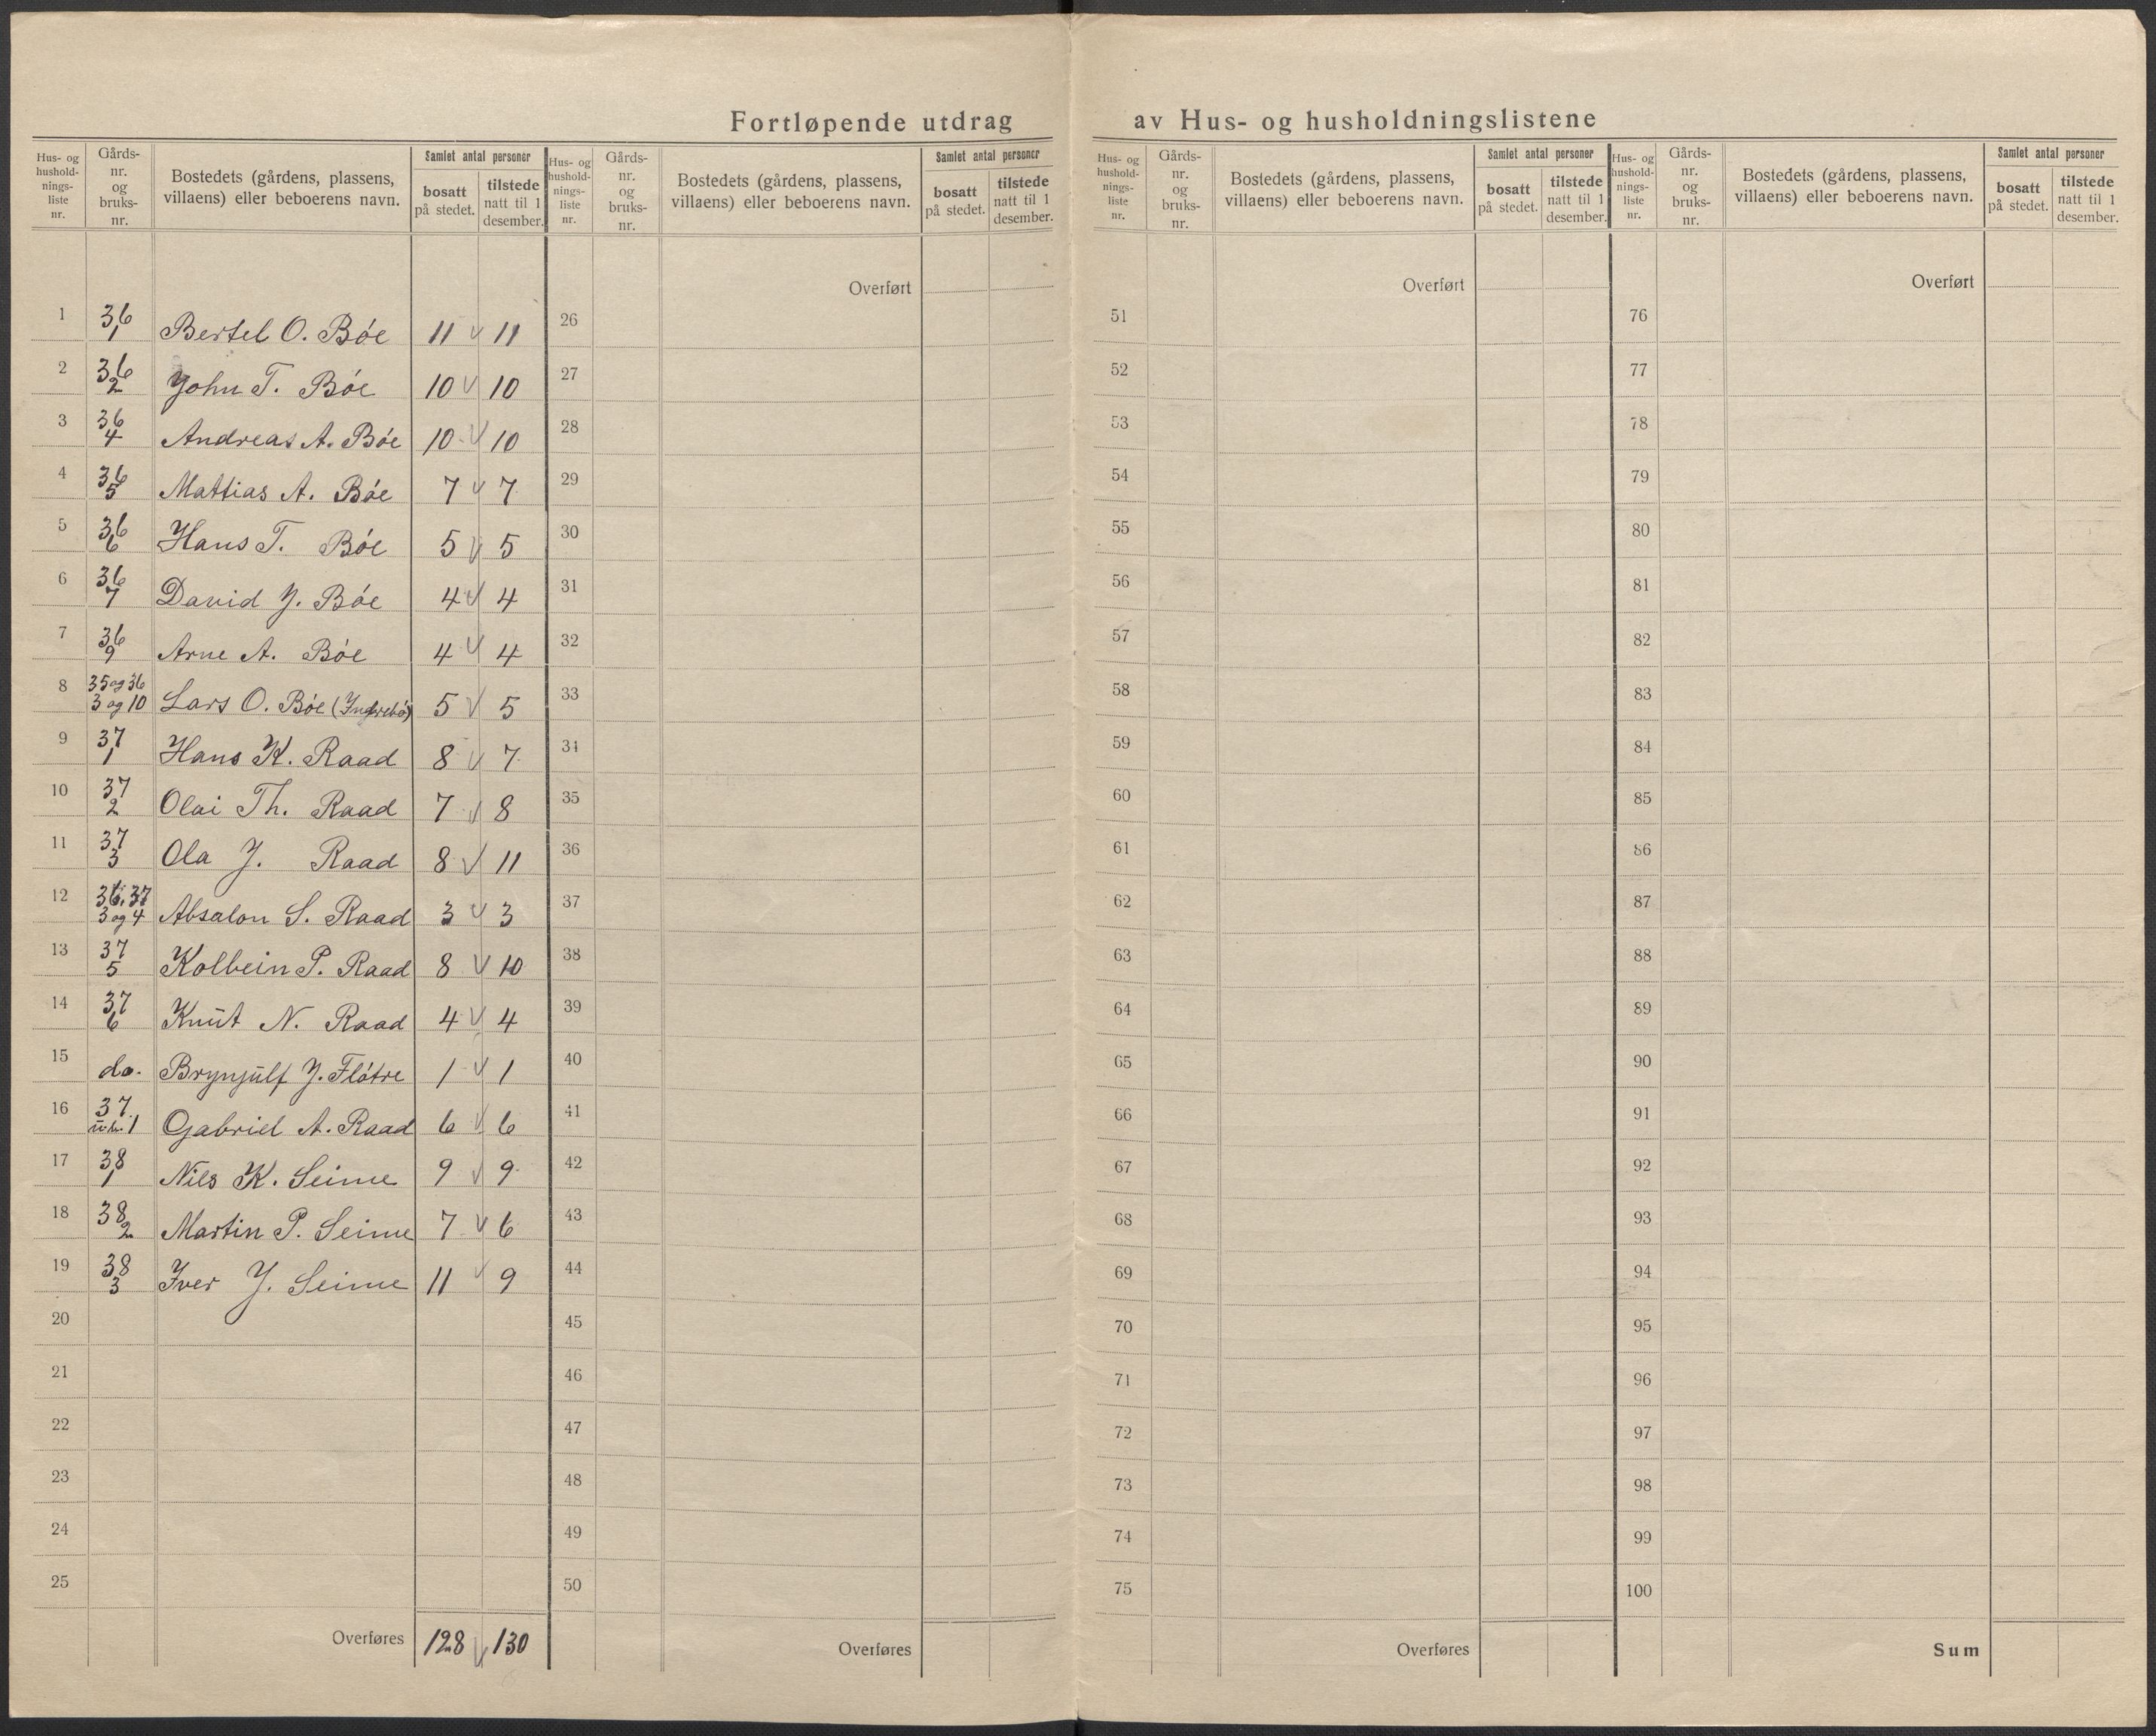 Fortløpende utdrag av Hus- og husholdningslistene
Hus- og hushold-nings-liste nr. Gårds-nr. og bruks-nr. Bostedets (gårdens, plassens, villaens) eller beboerens navn. Samlet antal personer bosatt på stedet. tilstede natt til 1 desember.
1 36/1 Bertel O. Bøe 11 11
2 36/2 John T. Bøe 10 10
3 36/4 Andreas A. Bøe 10 10
4 36/5 Mattias A. Bøe 7 7
5 36/6 Hans T. Bøe 5 5
6 36/7 David J. Bøe 4 4
7 36/9 Arne A. Bøe 4 4
8 35 og 36 3 og 10 Lars O. Bøe (Indrebø) 5 5
9 37/1 Hans K. Raad 8 7
10 37/2 Olai Th. Raad 7 8
11 37/3 Ola J. Raad 8 11
12 36. 37 3 og 4 Absalon S. Raad 3 3
13 37/5 Kolbein P. Raad 8 10
14 37/6 Knut N. Raad 4 4
15 do. Brynjulf J. Fløtre 1 1
16 37 1 Gabriel A. Raad 6 6
17 38/1 Nils K. Seime 9 9
18 38/2 Martin P. Seime 7 6
19 38/3 Iver J. Seime 11 9
20
21
22
23
24
25
Overføres 128 130
Hus- og hushold-nings-liste nr. Gårds-nr. og bruks-nr. Bostedets (gårdens, plassens, villaens) eller beboerens navn. Samlet antal personer bosatt på stedet. tilstede natt til 1 desember.
Overført
26
27
28
29
30
31
32
33
34
35
36
37
38
39
40
41
42
43
44
45
46
47
48
49
50
Overføres
Hus- og hushold-nings-liste nr. Gårds-nr. og bruks-nr. Bostedets (gårdens, plassens, villaens) eller beboerens navn. Samlet antal personer bosatt på stedet. tilstede natt til 1 desember.
Overført
51
52
53
54
55
56
57
58
59
60
61
62
63
64
65
66
67
68
69
70
71
72
73
74
75
Overføres
Hus- og hushold-nings-liste nr. Gårds-nr. og bruks-nr. Bostedets (gårdens, plassens, villaens) eller beboerens navn. Samlet antal personer bosatt på stedet. tilstede natt til 1 desember.
Overført
76
77
78
79
80
81
82
83
84
85
86
87
88
89
90
91
92
93
94
95
96
97
98
99
100
Sum